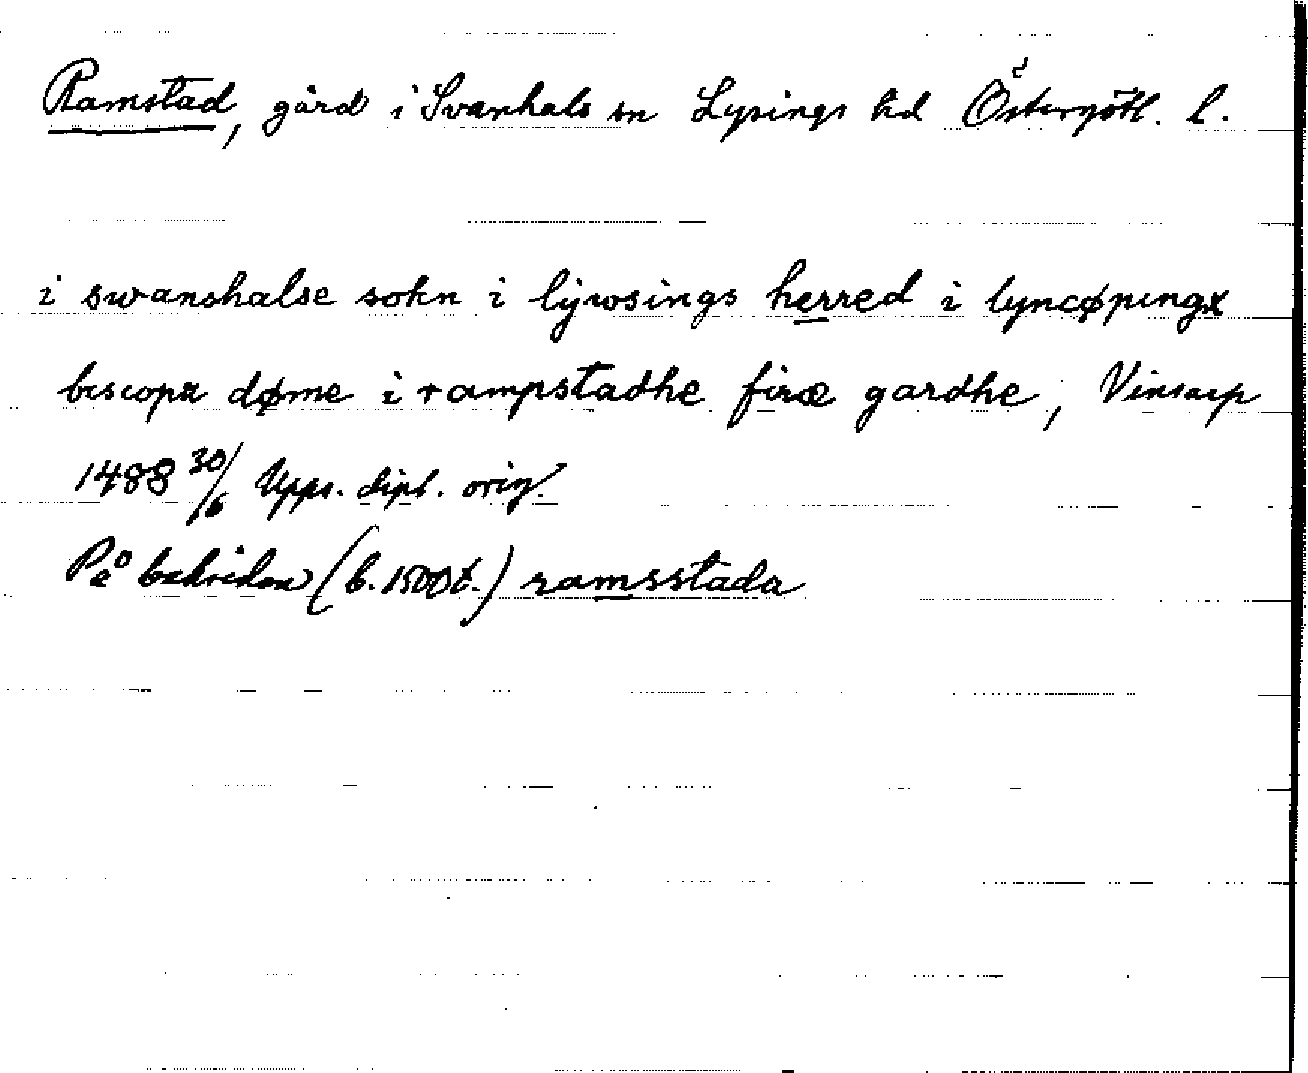 Ramstad, gård i Svanhals sn Lysings hd Östergötl. l.
i swanshalse sokn i lýwsings herred i lyncøpingx
biscops døme i rampstadhe firæ gardhe, Vinsarp
1488 30/6 Upps. dipl. orig.
På baksidan (b. 1500t.) ramsstada